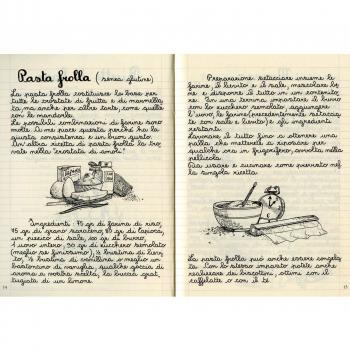 Pasta frolla (senza glutine)
La pasta frolla costituisce la base per
tutte le crostate di frutta e di marmella
ta, ma anche per altre torte, come quelle
con le mandorle.
Le possibili combinazioni di farine sono
molte. A me piace questa perché ha la
giusta consistenza e un buon gusto.
Un'altra ricetta di pasta frolla la tro
vate nella "crostata di limoni".
Ingredienti: 75 gr di farina di riso,
75 gr di grano saraceno, 80 gr di tapioca,
un pizzico di sale, 100 gr di burro,
1 uovo intero, 80 gr di zucchero semolato
(meglio se finissimo), ½ bustina di lievi
to, ½ bustina di vanillina o meglio un
bastoncino di vaniglia, qualche goccia di
aroma a vostra scelta, la buccia grat
tugiata di un limone.
14
Preparazione: setacciare insieme le
farine, il lievito e il sale, mescolare be
ne e disporre il tutto in un contenito
re. In una terrina impastare il burro
con lo zucchero semolato, aggiungere
l'uovo, le farine (precedentemente setaccia
te con sale e lievito) e gli ingredienti
restanti.
Lavorare il tutto fino a ottenere una
palla che metterete a riposare per
qualche ora in frigorifero, avvolta nella
pellicola.
Poi usare e cucinare come previsto nel
la singola ricetta.
La pasta frolla può anche essere congela
ta. Con lo stesso impasto potete anche
realizzare dei biscottini, ottimi con il
caffelatte o con il tè.
15